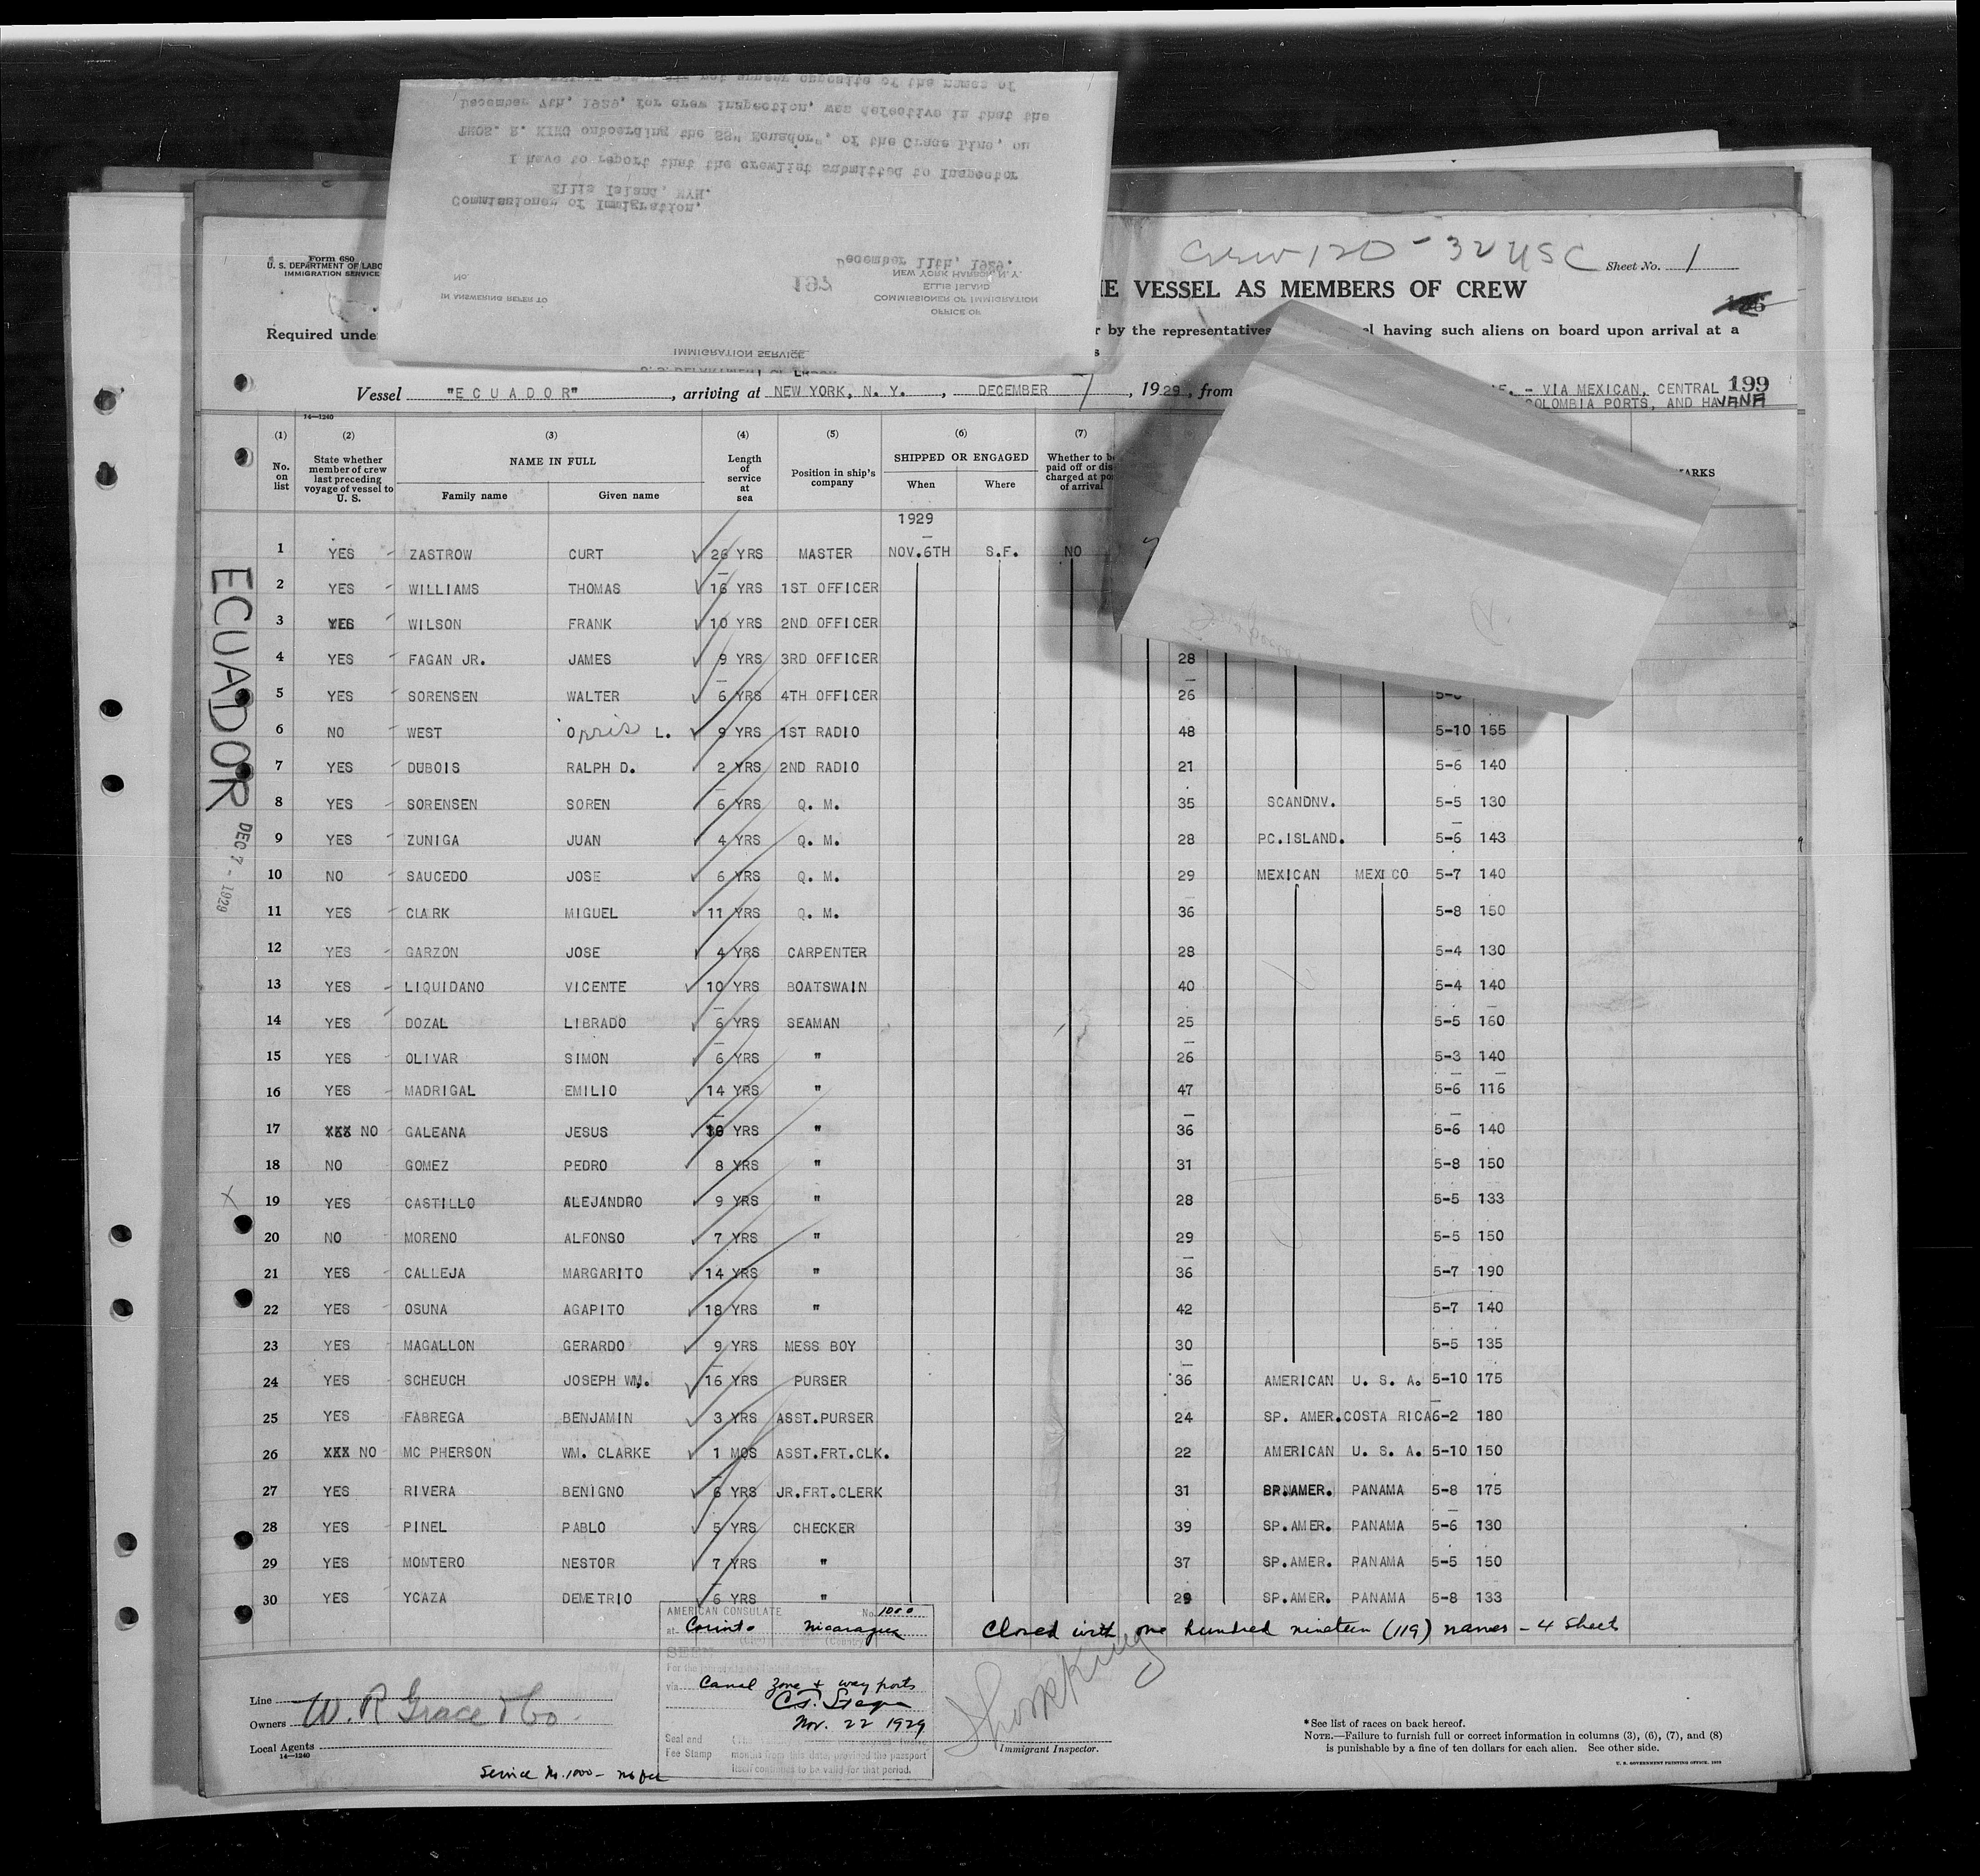 Crew 120 - 32 USC
Sheet No. 1
Form 680
U. S. DEPARTMENT OF LABO
IMMIGRATION SERVICE
E VESSEL AS MEMBERS OF CREW
Required unde
r by the representatives
el having such aliens on board upon arrival at a
appear opposite of the names of
December 7th, 1929, for crew inspection, was defective in that the
THOS. R. KING onboarding the SS" Ecuador", of the Grace Line, on
I have to report that the crewlist submitted to Inspector
Ellis Island, NYH.
Commissioner of Immigration,
December 11th, 1929.
197
No.
IN ANSWERING REFER TO
NEW YORK HARBOR, N.Y.
ELLIS ISLAND
COMMISSIONER OF IMMIGRATION
OFFICE OF
IMMIGRATION SERVICE
U. S. DEPARTMENT OF LABOR
Vessel "ECUADOR", arriving at NEW YORK, N. Y., DECEMBER 7, 1929, from
- VIA MEXICAN, CENTRAL 199
COLOMBIA PORTS, AND HAVANA
14—1240
(1) (2) (3) (4) (5) (6) (7)
No. on list
State whether member of crew last preceding voyage of vessel to U. S.
NAME IN FULL
Family name Given name
Length of service at sea
Position in ship's company
SHIPPED OR ENGAGED
When Where
Whether to be paid off or dis charged at po of arrival
ARKS
1929
1 YES ZASTROW CURT 26 YRS MASTER NOV.6TH S.F. NO
2 YES WILLIAMS THOMAS 16 YRS 1ST OFFICER
3 YES WILSON FRANK 10 YRS 2ND OFFICER
4 YES FAGAN JR. JAMES 9 YRS 3RD OFFICER 28
5 YES SORENSEN WALTER 6 YRS 4TH OFFICER 26
6 NO WEST Orris L. 9 YRS 1ST RADIO 48 5-10 155
7 YES DUBOIS RALPH D. 2 YRS 2ND RADIO 21 5-6 140
8 YES SORENSEN SOREN 6 YRS Q. M. 35 SCANDNV. 5-5 130
9 YES ZUNIGA JUAN 4 YRS Q. M. 28 PC.ISLAND. 5-6 143
10 NO SAUCEDO JOSE 6 YRS Q. M. 29 MEXICAN MEXICO 5-7 140
11 YES CLARK MIGUEL 11 YRS Q. M. 36 5-8 150
12 YES GARZON JOSE 4 YRS CARPENTER 28 5-4 130
13 YES LIQUIDANO VICENTE 10 YRS BOATSWAIN 40 5-4 140
14 YES DOZAL LIBRADO 6 YRS SEAMAN 25 5-5 160
15 YES OLIVAR SIMON 6 YRS " 26 5-3 140
16 YES MADRIGAL EMILIO 14 YRS " 47 5-6 116
17 XXX NO GALEANA JESUS YRS " 36 5-6 140
18 NO GOMEZ PEDRO 8 YRS " 31 5-8 150
19 YES CASTILLO ALEJANDRO 9 YRS " 28 5-5 133
20 NO MORENO ALFONSO 7 YRS " 29 5-5 150
21 YES CALLEJA MARGARITO 14 YRS " 36 5-7 190
22 YES OSUNA AGAPITO 18 YRS " 42 5-7 140
23 YES MAGALLON GERARDO 9 YRS MESS BOY 30 5-5 135
24 YES SCHEUCH JOSEPH WM. 16 YRS PURSER 36 AMERICAN U. S. A. 5-10 175
25 YES FABREGA BENJAMIN 3 YRS ASST.PURSER 24 SP. AMER. COSTA RICA 6-2 180
26 XXX NO MC PHERSON WM. CLARKE 1 MOS ASST.FRT.CLK. 22 AMERICAN U. S. A. 5-10 150
27 YES RIVERA BENIGNO 6 YRS JR.FRT.CLERK 31 SP.AMER. PANAMA 5-8 175
28 YES PINEL PABLO 5 YRS CHECKER 39 SP.AMER. PANAMA 5-6 130
29 YES MONTERO NESTOR 7 YRS " 37 SP.AMER. PANAMA 5-5 150
30 YES YCAZA DEMETRIO 6 YRS " 29 SP.AMER. PANAMA 5-8 133
ECUADOR
DEC 7 - 1929
AMERICAN CONSULATE No. 1000
at Corinto Nicaragua
SEEN
For the
via Canal Zone & way ports
Nov. 22 1929
Seal and
Fee Stamp
months from this date, provided the passport
itself continues to be valid for that period.
Closed with one hundred nineteen (119) names - 4 Sheets
Line
Owners W. R. Grace & Co.
Local Agents
14—1240
Service No. 1000 - no fee
Thos R King
Immigrant Inspector.
*See list of races on back hereof.
NOTE.—Failure to furnish full or correct information in columns (3), (6), (7), and (8)
is punishable by a fine of ten dollars for each alien. See other side.
U. S. GOVERNMENT PRINTING OFFICE. 1928